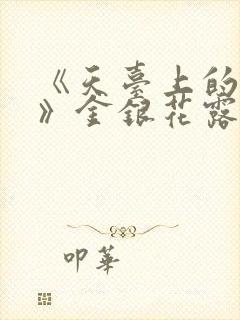 《天臺上的
》金銀花露
叩華